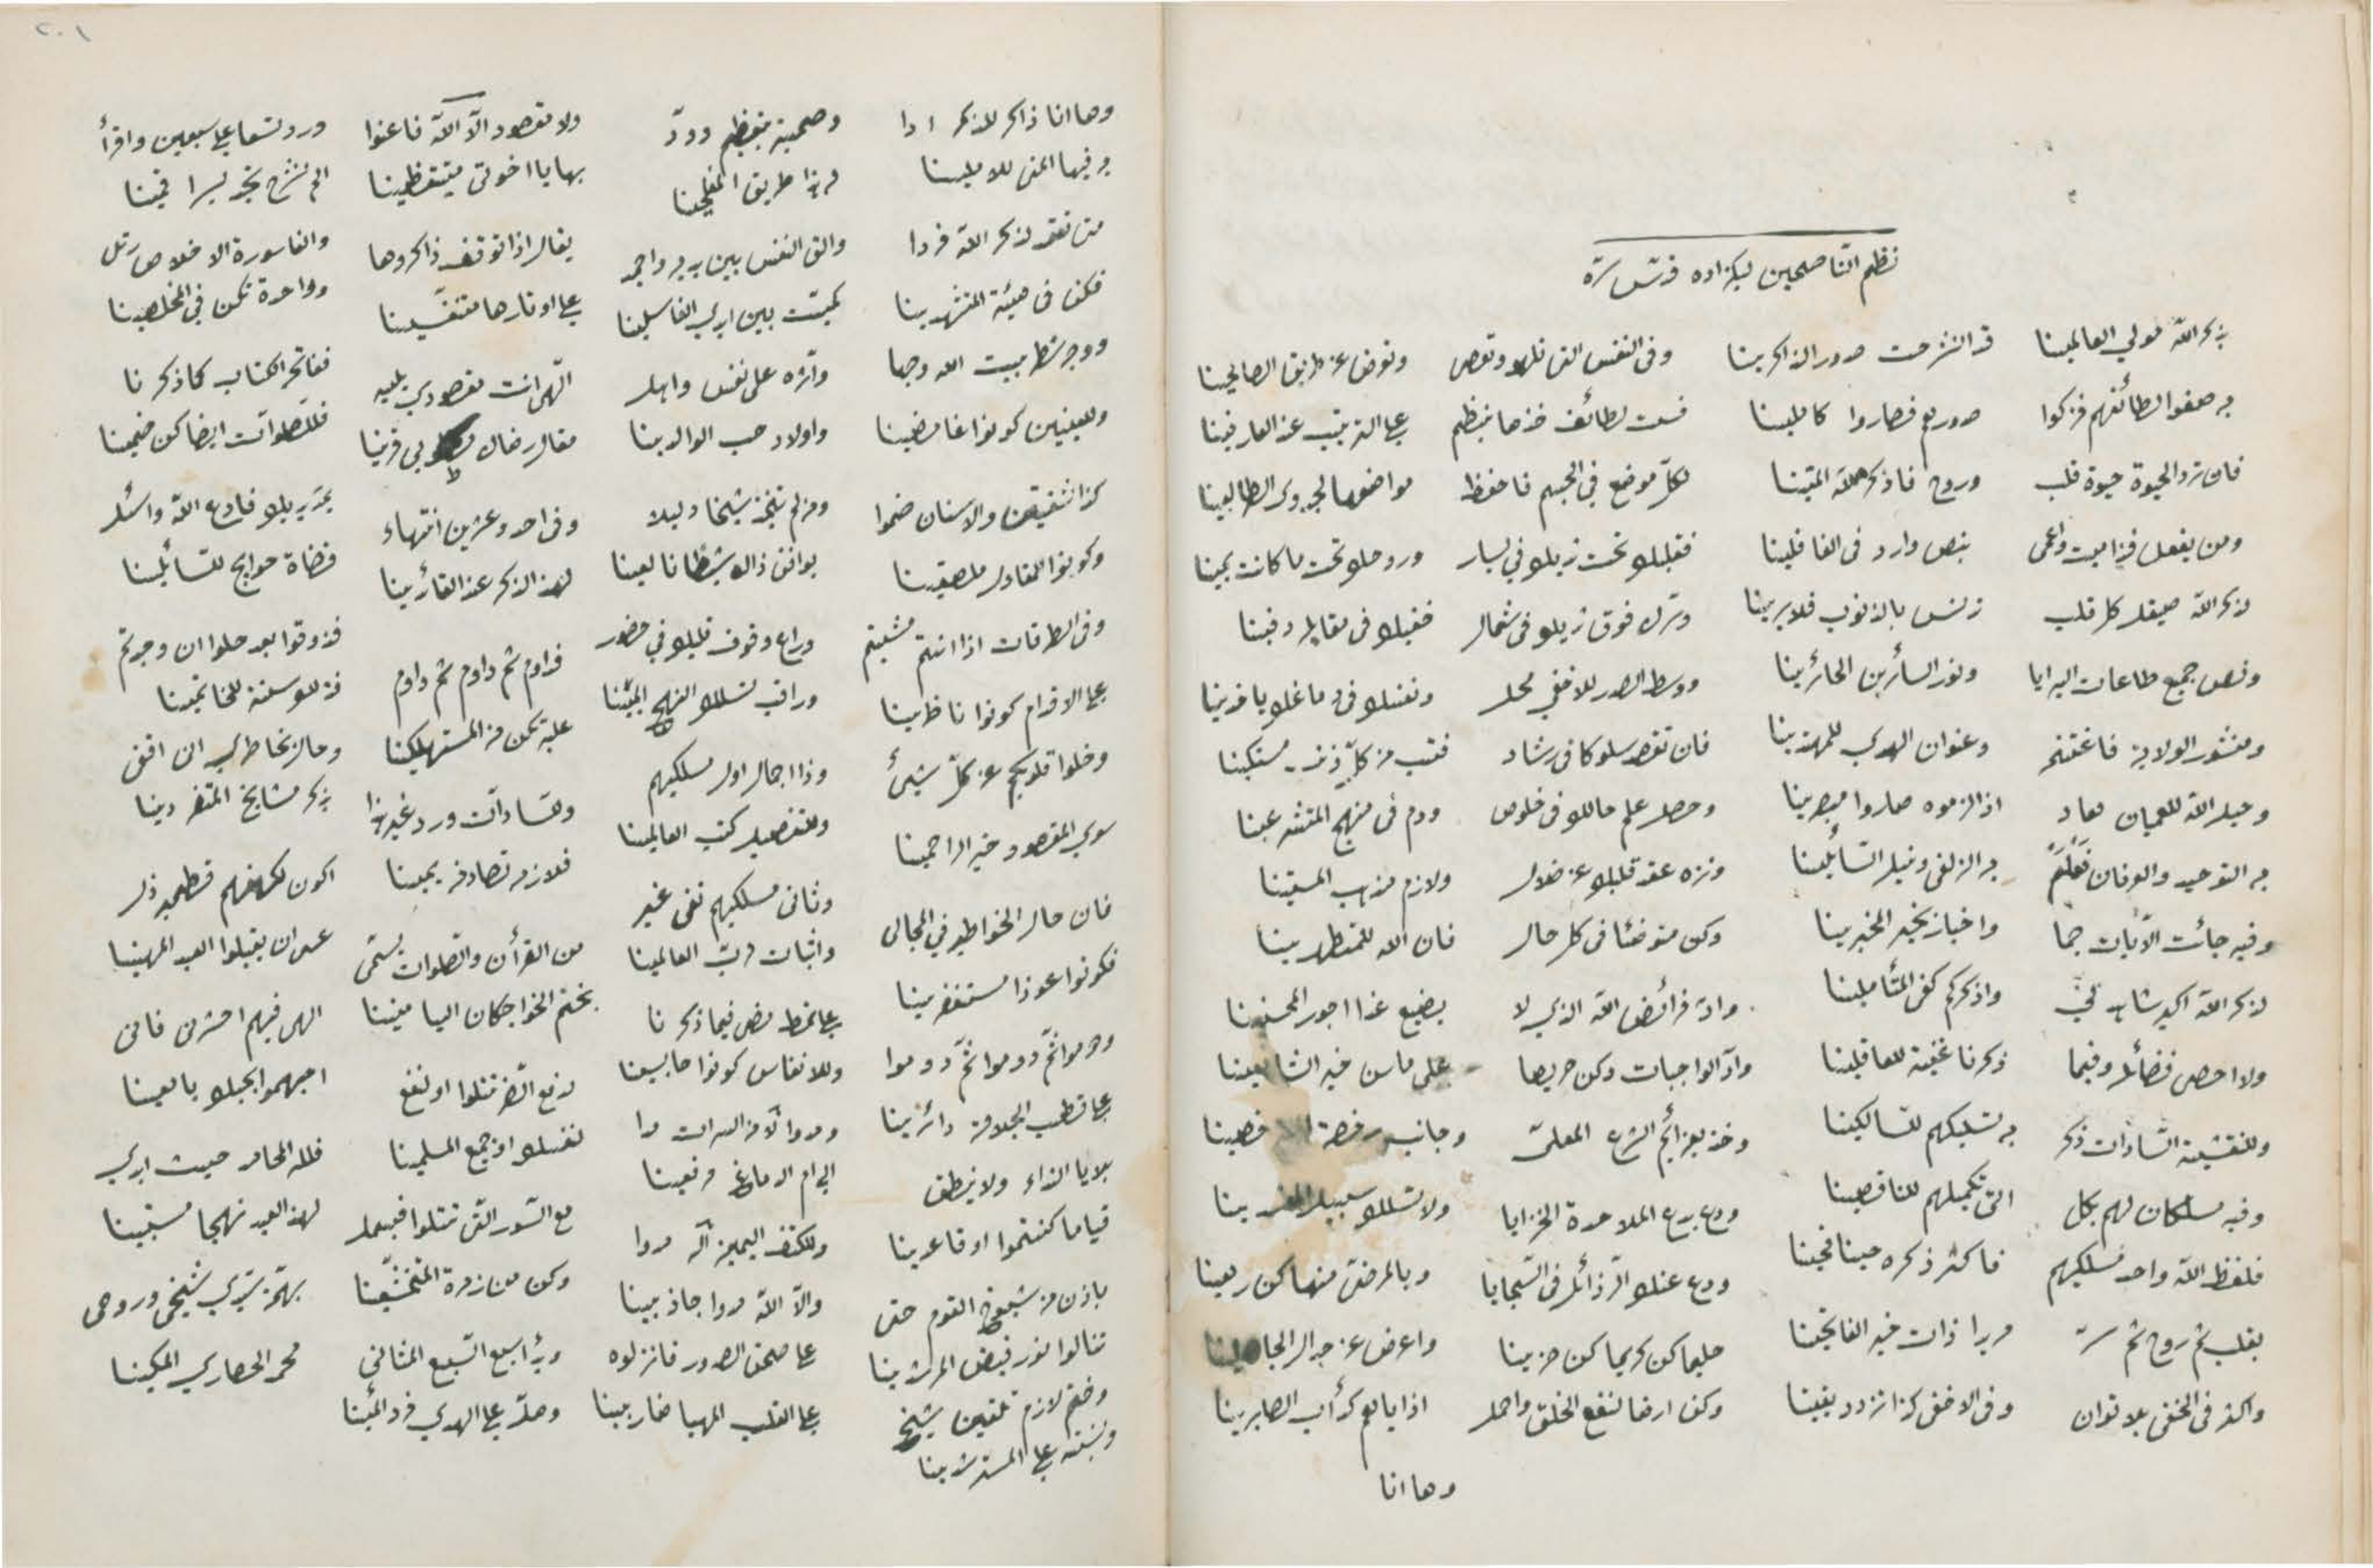 نظم الناصحين لبكزاده قدس سره
بذكر الله مولي العالمينا قد انشرحت صدور الذاكرينا
به صفوا لطائفهم فزكوا صدورهم فصاروا كاملينا
فان ترد الحيوة حيوة قلب وروح فاذكر الله المتينا
ومن يغفل فذا ميت واعمى بنص وارد فى الغافلينا
لذكر الله صيقل كل قلب تدنس بالذنوب فلا يرينا
وفص جميع طاعات البرايا ونور السائرين الحائرينا
ومنشور الولاية فاغتنم وعنوان الهدي للمهتدينا
وحبل الله للعميان هاد اذا لزموه صاروا مبصرينا
به التوحيد والعرفان به الزلفى ونيل السائلينا
وفيه جائت الآيات جما واخبار بخير المخبرينا
لذكر الله اكبر شاهد لي واذكركم كفى المتأملينا
ولا احصى فضائله وفيما ذكرنا غنية للعاقلينا
وللنقشبندية السادات ذكر به تسليكهم للسالكينا
وفيه مسلكان لهم بكل اتى تكميلهم للناقصينا
فلفظ الله واحد مسلكيهم فاكثر ذكره حينا فحينا
بقلب ثم روح ثم سر
واكثر فى الخفى بلا توان وفى الاخفى كذا تزدد يقينا
وفى النفس التى تلهو وتعصى وتعرض عن طريق الصالحينا
فست لطائف خذها بنظم على الترتيب عند العارفينا
لكل موضع في الجسم فاحفظ مواضعها لجدوى الطالبينا
فقلبك تحت ثديك في يسار وروحك تحت ما كانت يمينا
وسرك فوق ثديك فى شمال خفيك فى مقابله دفينا
ووسط الصدر للاخفى محل ونفسك فى دماغك يا فدينا
فان تقصد سلوكا فى رشاد فتب من كل ذنب مستكينا
وحصل علم حالك فى خلوص ودم فى منهج المتشرعينا
ونزه عقد قلبك عن ضلال ولازم مذهب السنينا
وكن متوضئا فى كل حال فان الله للمتطهرينا
واد فرائض الله الذي لا يضيع غدا اجور المحسنينا
واد الواجبات وكن حريصا على ما سن خير الشافعينا
وخذ بعزائم الشرع المعلى وجانب رخصة
ودع بدع الملاحدة الخزايا ولا تسلك سبيل
ودع عنك الرذائل فى السجايا وبالمرضى منها كن رهينا
حليما كن كريما كن حزينا واعرض عن جدال الجاهلينا
وكف ارضا لنفع الخلق واحمل اذاياهم كدأب الصابرينا
وها انا
٢٠١
وها انا ذاكر للذكر ادا
وفيها المنى للاملينا
متى تقعد لذكر الله فردا
فكن فى هيئة
ووجه شطر بيت الله وجها
وللعينين كونوا غامضينا
كذا شفتين والاسنان ضموا
وكونوا
وفى الطرقات اذا انتم مشيتم
على الاقدام كونوا ناظرينا
وخلوا قلوبكم عن كل شيئ
سوي المقصود خير الراحمينا
فان حال الخواطر في المجالى
فكونوا عوذا مستغفرينا
ودوموا ثم دوموا ثم دوموا
على قطب الجلالة دائرينا
بلايا النداء ولا نطق
قياما كنتموا او قاعدينا
باذن من شيوخ القوم حتى
تنالوا نور فيض المرشدينا
وخذ لازم تلقين شيخ
ونسبته على المسترشدينا
وصحبة بتعظيم وود
لهذا طريق المفلحينا
والق النفس بين يديه واجمد
كميت بين ايدي الغاسلينا
وآثره على نفس واهل
واولاد وحب الوالدينا
ومن لم يتخذ شيخا دليلا
يوافق ذاك شيطانا لعينا
وراع وقوف قلبك في حضور
وراقب تسلك النهج المبينا
وذا اجمال اول مسلكيهم
وللتفصيل كتب العالمينا
وثانى مسلكيهم نفى غير
واثبات لرب العالمينا
على نمط مضى فيما ذكرنا
وللانفاس كونوا حابسينا
ومدوا لا من السرات مدا
الى ام الدماغ
وللكتف اليمين اله مدوا
والا الله مدوا جاذبينا
على صحن الصدور فانزلوه
على القلب المهيا ضاربينا
ولا مقصود الا الله فاعنوا
بها يا اخوتى متيقظينا
يقال اذا توقف ذاكروها
على اوتارها متنفسينا
الهى انت مقصودي يليه
مقال رضاك مطلوبى قرينا
وفى احد وعشرين انتهاء
لهذا الذكر عند القائرينا
فداوم ثم داوم ثم داوم
عليه تكن من المستهلكينا
وللسادات ورد غير هذا
فلازمه تصادفه يمينا
من القرأن والصلوات يسمى
بختم الخواجكان اليامينا
لدفع الضر تتلوا او لنفع
لنفسك او جميع المسلمينا
مع السور التى تتلوا فبسمل
وكن من زمرة المتخشعينا
وبدأ سبع السبع المثانى
وصل على الهدي فردا
ورد تسعا على سبعين واقرأ
الم نشرح تجد يسرا قمينا
والفا سورة الاخلاص رتل
وواحدة تكن في المخلصينا
ففاتحة الكتاب كما ذكرنا
فللصلوات ايضا كن ضمينا
يمد يديك فادع الله واسئل
قضاء حوايج للسائلينا
فذوقوا بعد حلوا ان وجدتم
فذلك سنة للخاتمينا
بذكر مشايخ المتفردينا
اكون لكهفهم قطمير ذل
عسى ان يقبلوا العبد المهينا
الهى فيهم احشرنى فانى
احبهموا بحبلك يا معينا
فلله المحامد حيث ابدي
لهذا العبد نهجا مستبينا
بهمة سيدي شيخى وروحى
محمد الحصاري المكينا